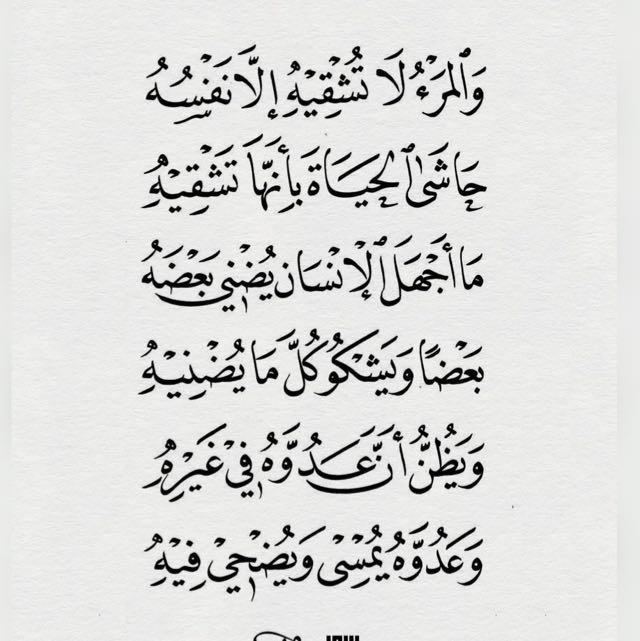 وَٱلمَرْءُ لَا تُشْقِيْهِ إلَّا نَفْسُهُ
حَاشَىٰ ٱلحَيَاةَ بِأَنَّهَا تَشْقِيْهِ
مَا أَجْهَلَ ٱلْإنْسَان يُضْنِي بَعْضَهُ
بَعْضًا وَيَشْكُو كُلَّ مَا يُضْنِيْهِ
وَيَظُنُّ أَنَّ عَدُوَّهُ فِيْ غَيْرِهِ
وَعَدُوَّهُ يُمْسِيْ وَيُضْحِيْ فِيْهِ